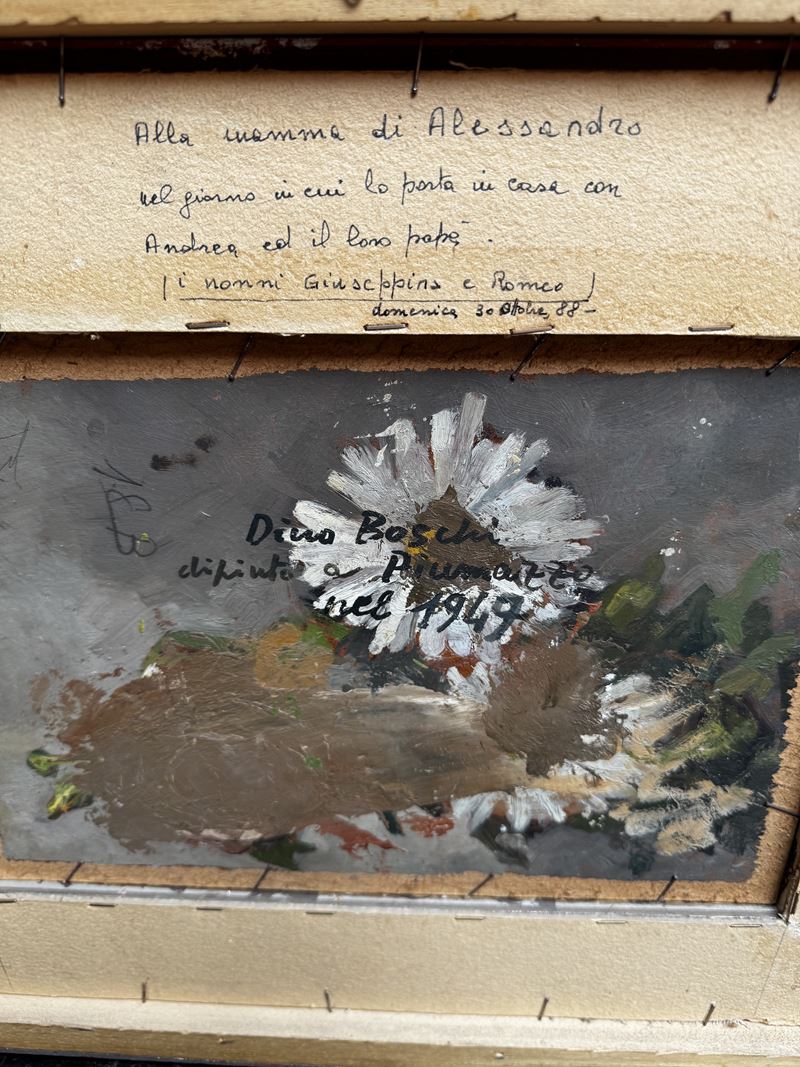 Alla mamma di Alessandro
nel giorno in cui lo porta in casa con
Andrea ed il loro papà.
(i nonni Giuseppina e Romeo)
domenica 30 Ottobre, 88 -
Dino Boschi
dipinto a Piumazzo
nel 1949